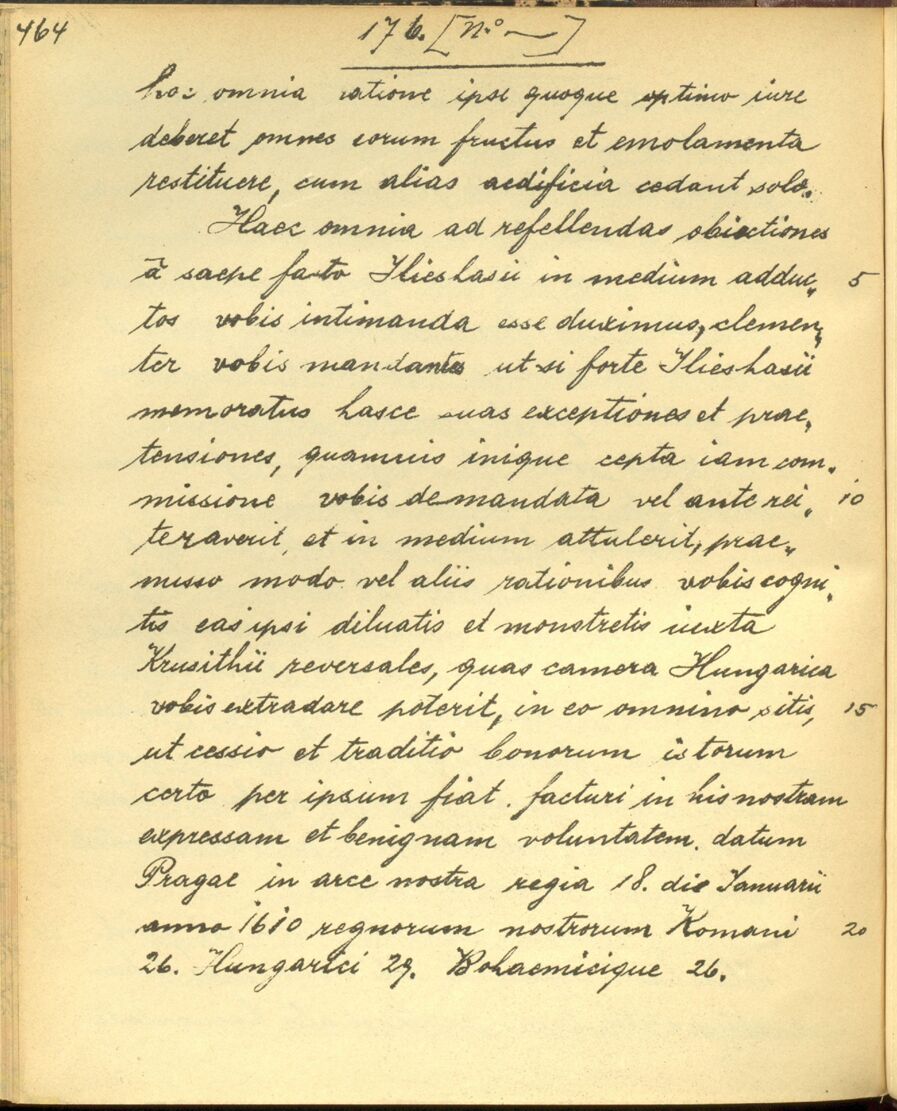 464
176. [No —]
hac omnia ratione ipse quoque optimo iure
deberet omnes eorum fructus et emolamenta
restituere, cum alias aedificia cedant solo.
Haec omnia ad refellendas obiectiones
à saepe facto Ilieshasii in medium adduc„ 5
tos vobis intimanda esse duximus, clemen„
ter vobis mandantes ut si forte Ilieshasii
memoratus hasce suas exceptiones et prae„
tensiones, quamuis inique cepta iam com„
missione vobis demandata vel ante rei„ 10
teraverit, et in medium attulerit, prae„
misso modo vel aliis rationibus vobis cogni„
tis eas ipsi diluatis et monstretis iuxta
Krusithii reversales, quas camera Hungarica
vobis extradare poterit, in eo omnino sitis, 15
ut cessio et traditio bonorum istorum
certo per ipsum fiat. facturi in his nostram
expressam et benignam voluntatem. datum
Pragae in arce nostra regia 18. die Ianuarii
anno 1610 regnorum nostrorum Romani 20
26. Hungarici 29. Bohaemicique 26.